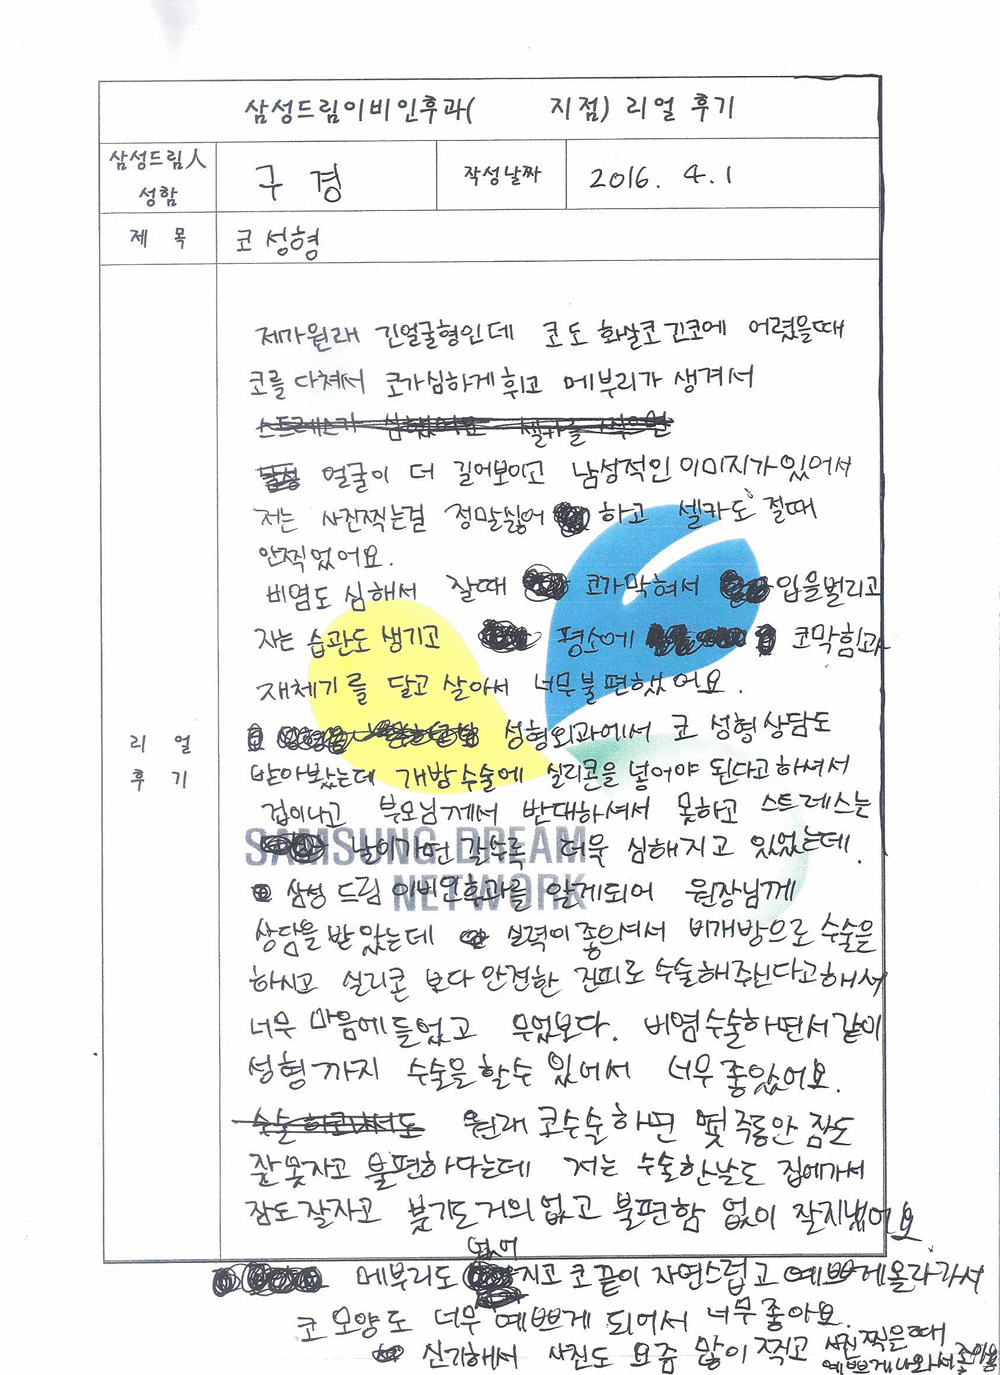 삼성드림이비인후과(          지점) 리얼 후기
삼성드림人
성함
구 경
작성날짜
2016. 4. 1
제 목
코 성형
제가원래 긴얼굴형인데 코도 화살코 긴코에 어렸을때
코를 다쳐서 코가심하게 휘고 메부리가 생겨서
얼굴이 더 길어보이고 남성적인 이미지가있어서
저는 사진찍는걸 정말싫어 하고 셀카도 절때
안찍었어요.
비염도 심해서 잘때 코가막혀서 입을벌리고
자는 습관도 생기고 평소에 코막힘과
재체기를 달고 살아서 너무불편했어요.
성형외과에서 코 성형상담도
받아봤는데 개방수술에 실리콘을 넣어야 된다고하셔서
겁이나고 부모님께서 반대하셔서 못하고 스트레스는
SAMSUNG DREAM
날이가면 갈수록 더욱 심해지고 있었는데.
NETWORK
삼성 드림 이비인후과를 알게되어 원장님께
리 얼
후 기
상담을 받았는데 실력이 좋으셔서 비개방으로 수술을
하시고 실리콘 보다 안전한 진피로 수술해주신다고해서
너무 마음에들었고 무엇보다. 비염수술하면서같이
성형까지 수술을 할수 있어서 너무좋았어요.
원래 코수술하면 몇주동안 잠도
잘못자고 불편하다는데 저는 수술한날도 집에가서
잠도잘자고 붓기도거의없고 불편함 없이 잘지냈어요.
메부리도 없어지고 코끝이 자연스럽고 예쁘게올라가서
코 모양도 너무 예쁘게 되어서 너무좋아요.
신기해서 사진도 요즘 많이 찍고 사진찍을때
예쁘게나와서